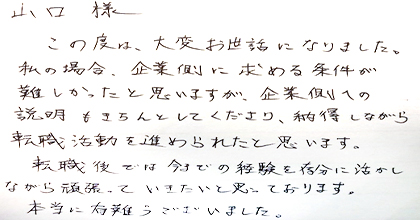 山口 様
この度は、大変お世話になりました。
私の場合、企業側に求める条件が
難しかったと思いますが、企業側への
説明もきちんとしてくださり、納得しながら
転職活動を進められたと思います。
転職後では今までの経験を存分に活かし
ながら頑張っていきたいと思っております。
本当に有難うございました。